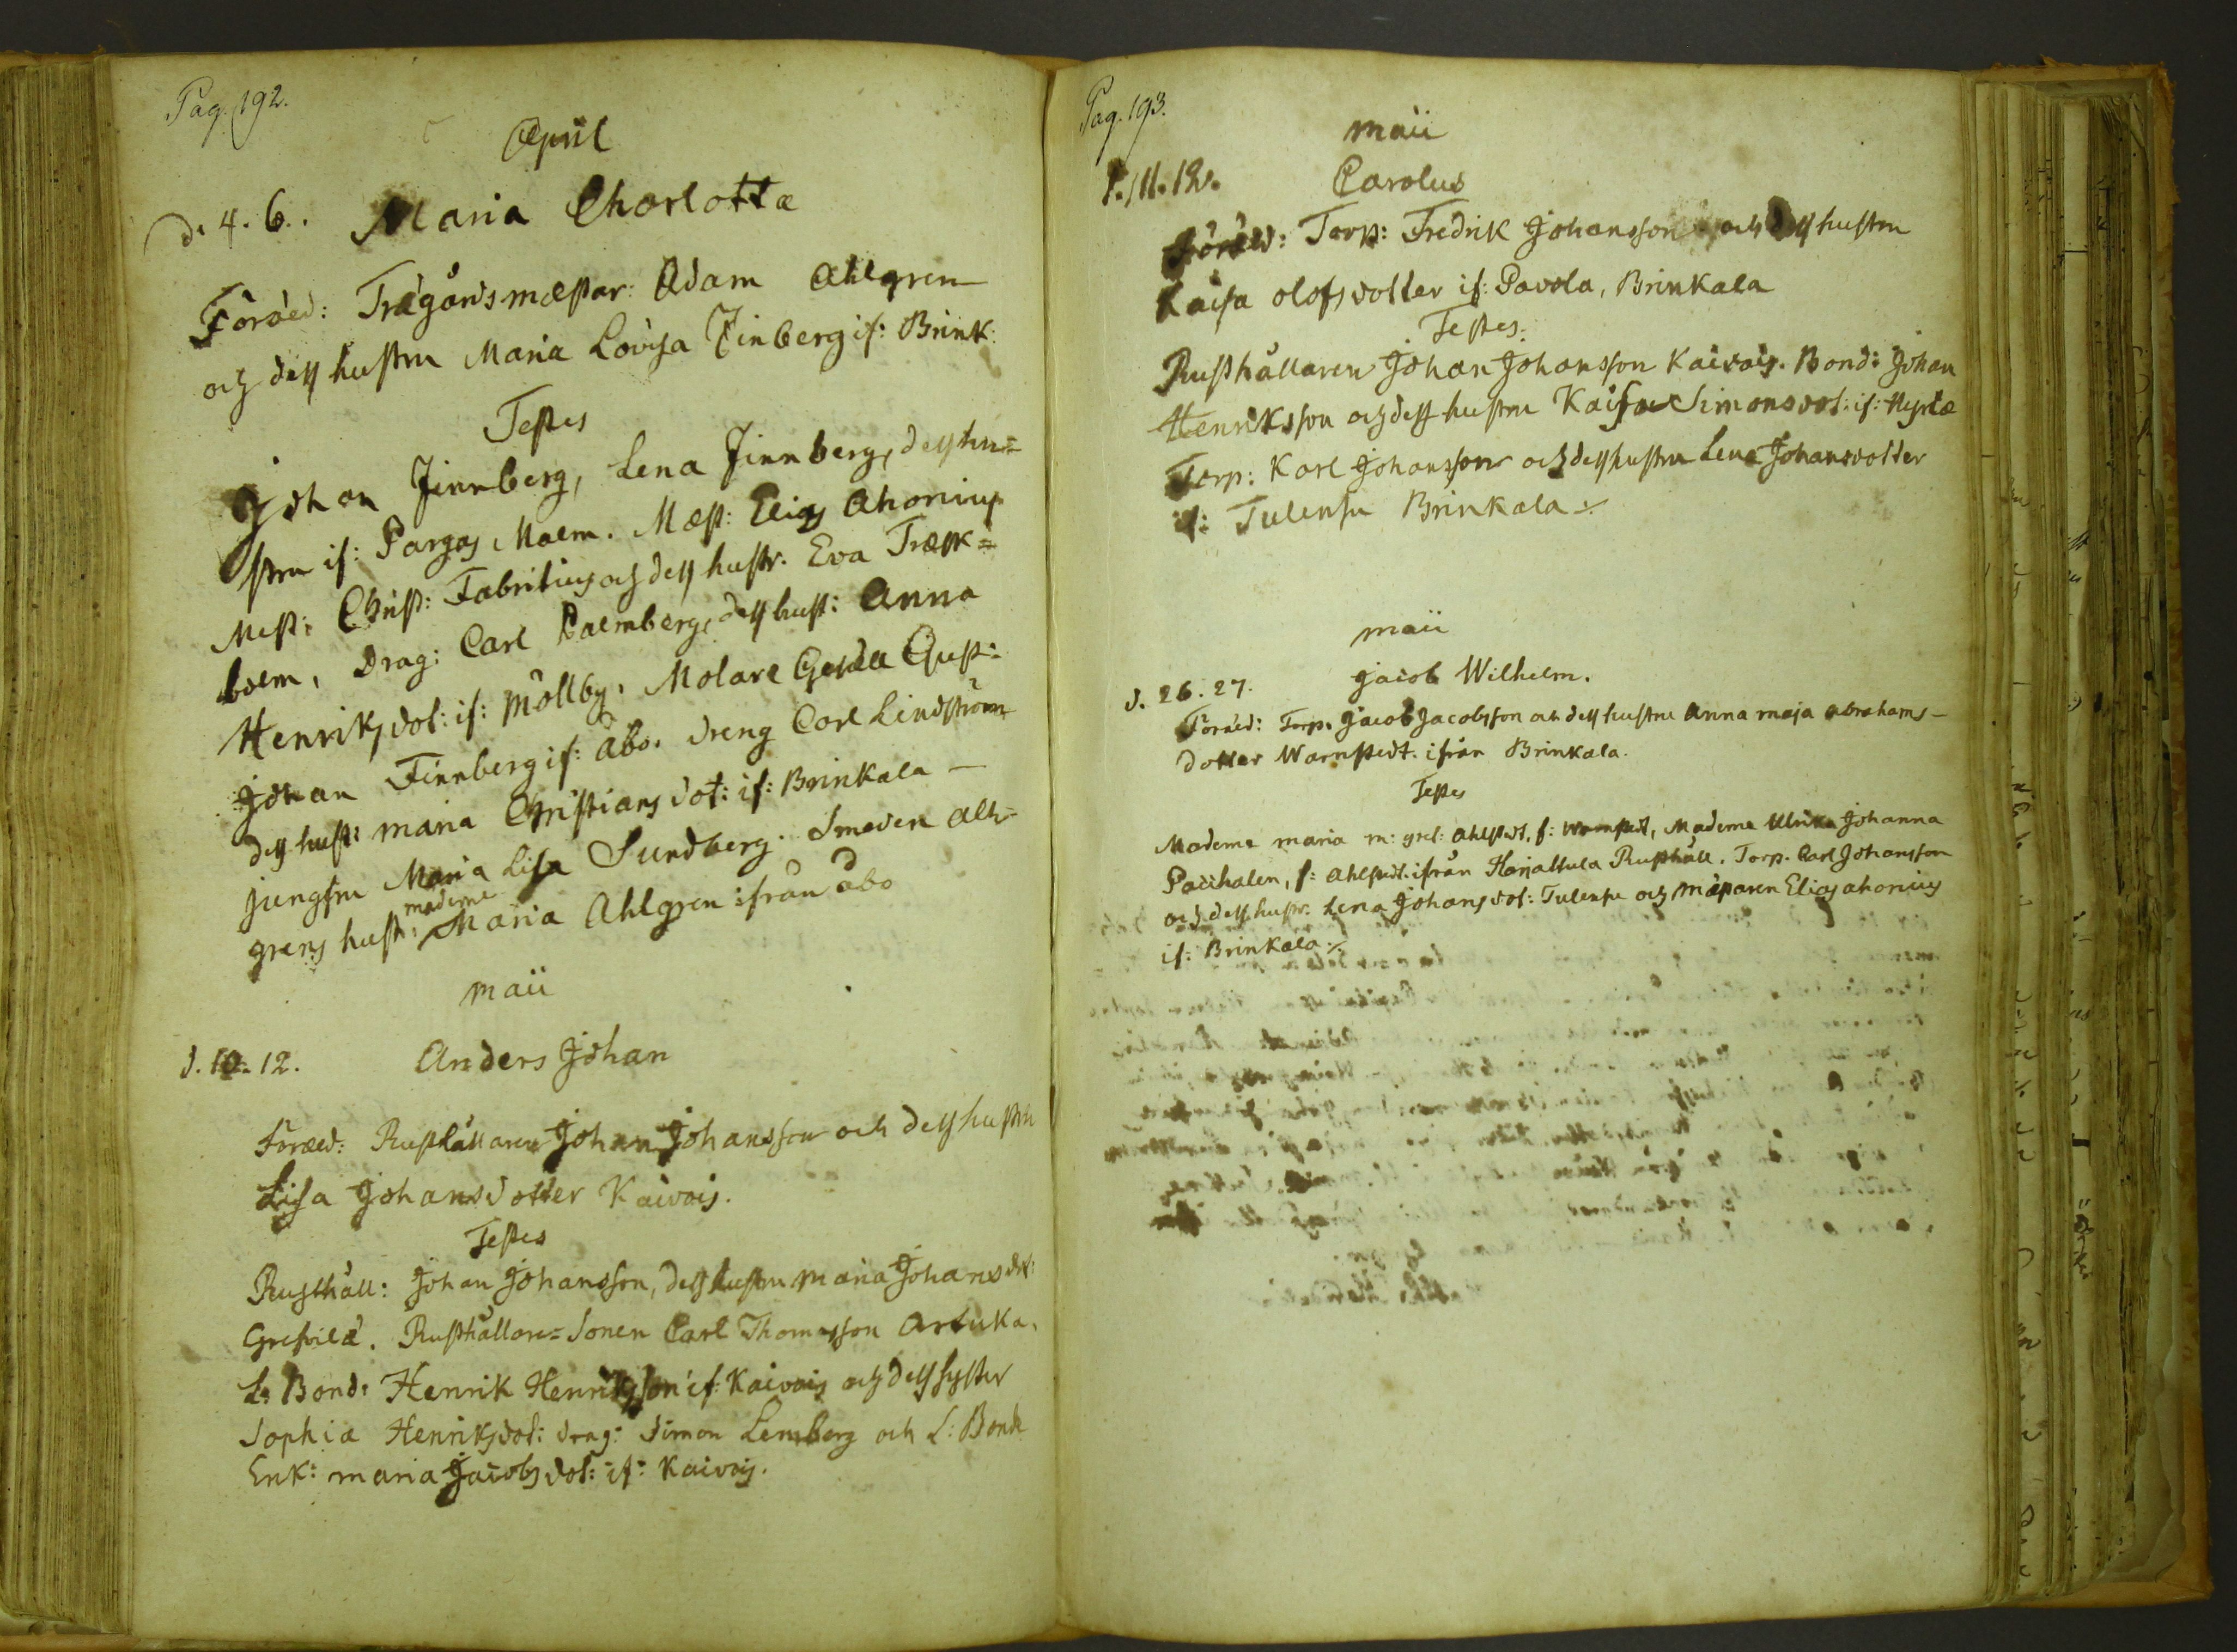 Pag. 192.
April
d. 4. 6. Maria Charlotta
Föräld: Trägårdsmæstar: Adam Ahlgren
och dess hustru Maria Lovisa Finberg if: Brink:
Testes
Johan Finnberg, Lena Finnberg, dess hu=
stru if: Pargas Malm. Mæst: Elias Ahonius
Mest: Christ: Fabritius och dess hustr. Eva Træsk=
bolm, Drag: Carl Palmberg, dess hust: Anna
Henriksdot: if: Möllby. Molare Gesäll Gust:
Johan Finnberg if: Åbo. dreng Carl Lindström
dess hust: maria Christians dot: if: Brinkala —
jungfru Maria Lisa Sundberg. Smeden Alh-
grens hust: madame Maria Ahlgren ifrån åbo
maii
d. 10. 12. Anders Johan
Föræld: Rusthållaren Johan Johansson och dess hustru
Lisa Johansdotter Kaivois.
Testes
Rusthåll: Johan Johansson, dess hustru maria Johansdot:
Grefvilä. Rusthållare=Sonen Carl Thomasson Artuka.
L: Bond: Henrik Henriksson if: Kaivois och dess syster
Sophia Henriksdot: drag: Simon Lemberg och L: Bonde
Enk: maria Jacobs dot: if: Kaivois.
Pag. 193.
maii
d. 11. 12. Carolus
Föräld: Torp: Fredrik Johansson och dess hustru
Kaisa olofsdotter if: Pavola, Brinkala
Testes.
Rusthållaren Johan Johansson Kaivois. Bond: Johan
Henriksson och dess hustru Kaisa Simonsdot: if:
Torp: Karl Johansson och dess hustru Lena Johansdotter
if: Tulensu Brinkala
maii
d. 26. 27. Jacob Wilhelm.
Föräld: Torp. Jacob Jacobsson och dess hustru Anna maja abrahams-
dotter Warnstedt. ifrån Brinkala.
Testes
Madame maria m: gret: Ahlstedt, f: Warnstedt, Madame Ulrika Johanna
f: Ahlstedt. ifrån Harjattula Rusthåll. Torp. Carl Johansson
och dess hustr. Lena Johansdot: Tulensu och Elias ahonius
if: Brinkala